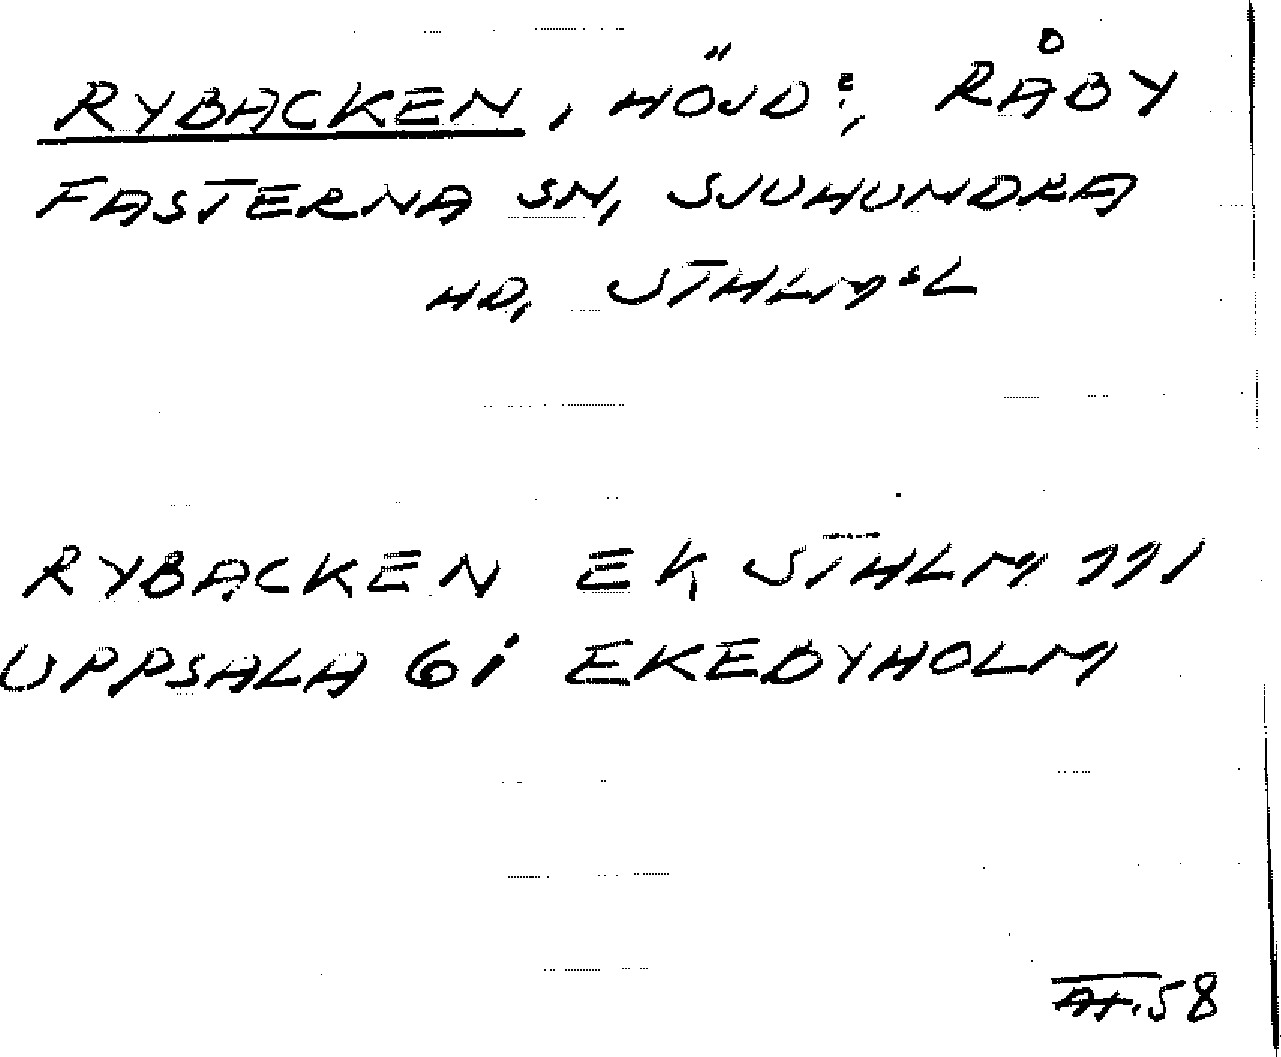 RYBACKEN, HÖJD:, RÅBY
FASTERNA SN, SJUHUNDRA
HD, STHLMsL
RYBACKEN EK STHLM 111
UPPSALA 6i EKEBYHOLM
58